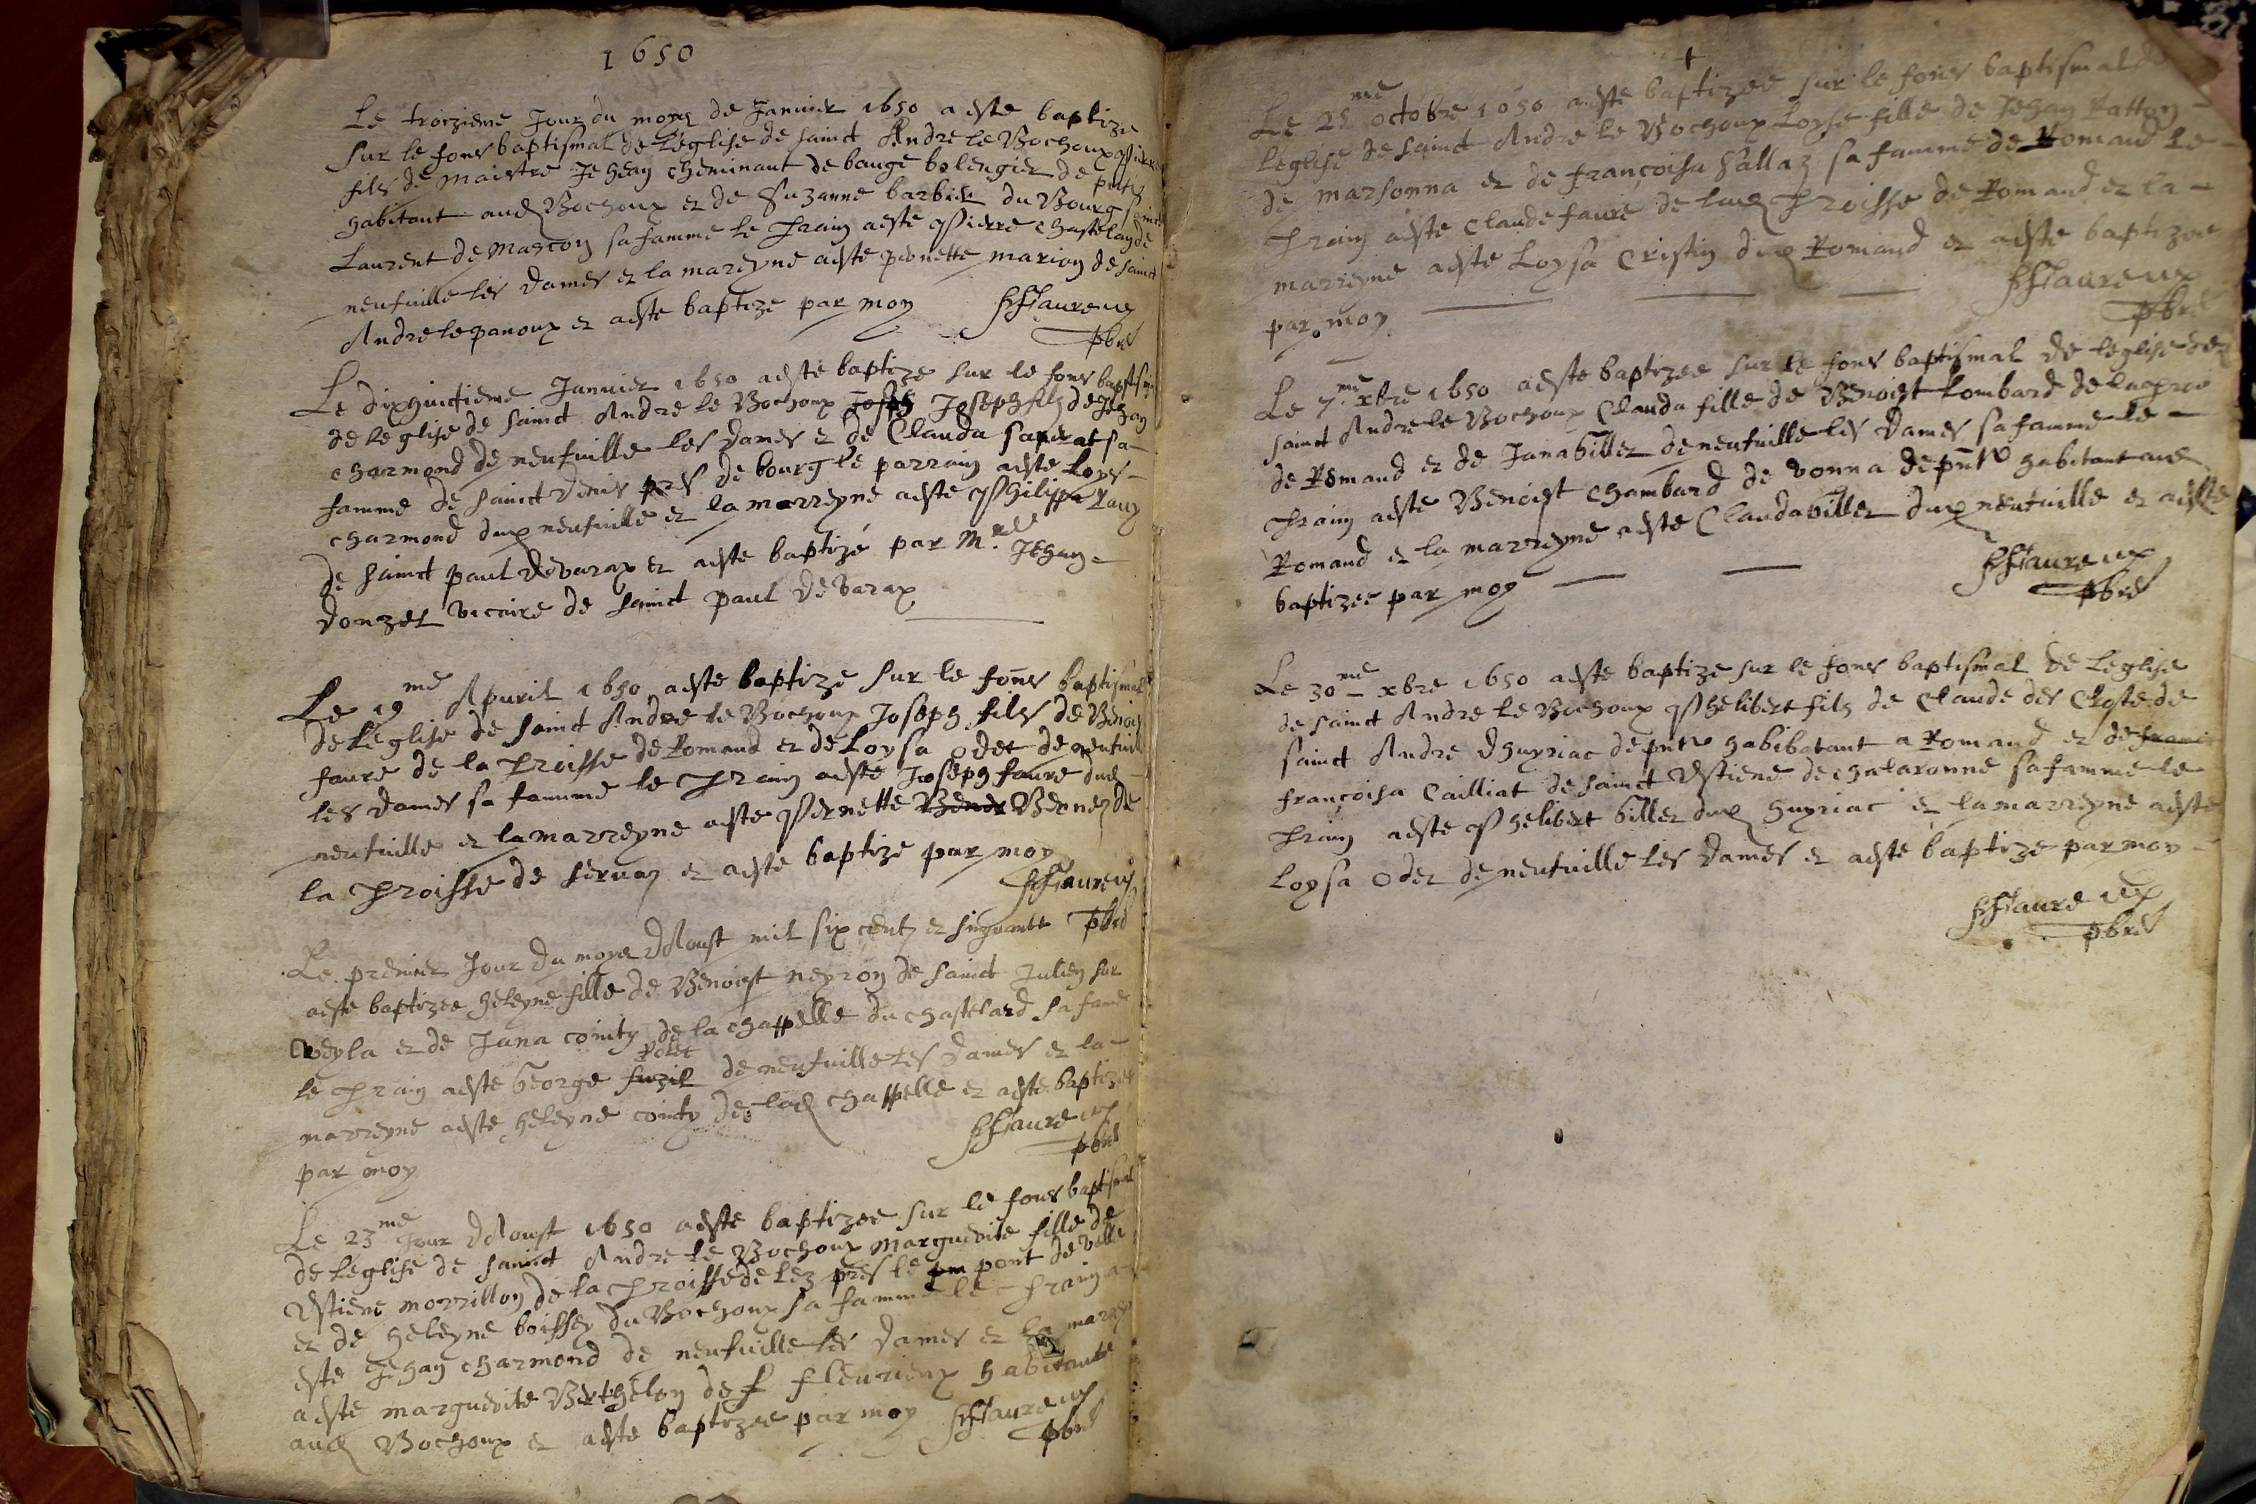 1650
Le troizieme Jour du moys de Januier 1650 a este baptize
sur le fons baptismal de l'eglise de sainct Andre le Bochoux Pierre
fils de maistre Jehan cheminant de bauge bolengier de
habitant aud Bochoux et de Suzanne barbier du Bourg sainct
Laurent de mascon sa famme le prain a este Pierre chastelan de
neufuille les dames et la mareyne a este pernette marion de sainct
Andre le panoux et a este baptize par moy
pbre
Le dixhuictieme Januier 1650 a este baptize sur le fons baptismal
de leglise de sainct Andre le Bochoux Joseph Joseph filz de Jehan
charmond de neufuille les dames et de Clauda sa
famme de sainct denis pres de bourg le parrain a este Loys
charmond dud neufuille et la marreyne a este Philippa
de sainct paul de varax et a este baptizé par Mre Jehan
donzel vicaire de sainct paul de varax
Le 19me Apuril 1650 a este baptize sur le fons baptismal
de l'eglise de sainct Andre le Bochoux Joseph fils de Benoist
faure de la proisse de Romand et de Loysa odet de neufuille
les dames sa famme le prain a este Joseph faure dud
neufuille et la marreyne a este Pernette de
la proisse de seruas et a este baptize par moy
pbre
Le premier Jour du moys dAoust mil six centz et sinquante
a este baptizee heleyne fille de Benoist neyron de sainct Julien sur
veyla et de Jana cointy de la chappelle du chastelard sa famme
le prain a este George de neufuille les dames et la
marreyne a este heleyne cointy de lad chappelle et a este baptizee
par moy
pbre
Le 23me Jour dAoust 1650 a este baptizee sur le fons baptismal
de l'eglise de sainct Andre le Bochoux marguerite fille de
Estiene morrillon de la proisse de lez pres le pont de velle
et de heleyne boissey du Bochoux sa famme le prain a
este Jehan charmond de neufuille les dames et la marreyne
a este marguerite Berthelon de fleurieux habitante
aud Bochoux et a este baptizee par moy
pbre
Le 25me octobre 1650 a este baptizee sur le fons baptismal de
l'eglise de sainct Andre le Bochoux Loyse fille de Jehan
de marsonna et de françoisa sallaz sa famme de Romand le
prain a este Claude faure de lad proisse de Romand et la
marreyne a este Loysa Cristin dud Romand et a este baptizee
par moy
pbre
Le 7me xbre 1650 a este baptizee sur le fons baptismal de l'eglise de
sainct Andre le Bochoux Clauda fille de Benoist Lombard de la
de Romand et de Jana billet de neufuille les dames sa famme le
prain a este Benoist chambard de vonna de pnt habitant aud
Romand et la marreyne a este Clauda billet dud neufuille et a este
baptizee par moy
pbre
Le 30me xbre 1650 a este baptize sur le fons baptismal de leglise
de sainct Andre le Bochoux Phelibert filz de Claude des Closte de
sainct Andre dhuyriac de pnt habibatant a Romand et de
françoisa Cailliat de sainct Estiene de chalaronne sa famme le
prain a este Phelibert billet dud huyriac et la marreyne a este
Loysa odet de neufuille les dames et a este baptize par moy
pbre